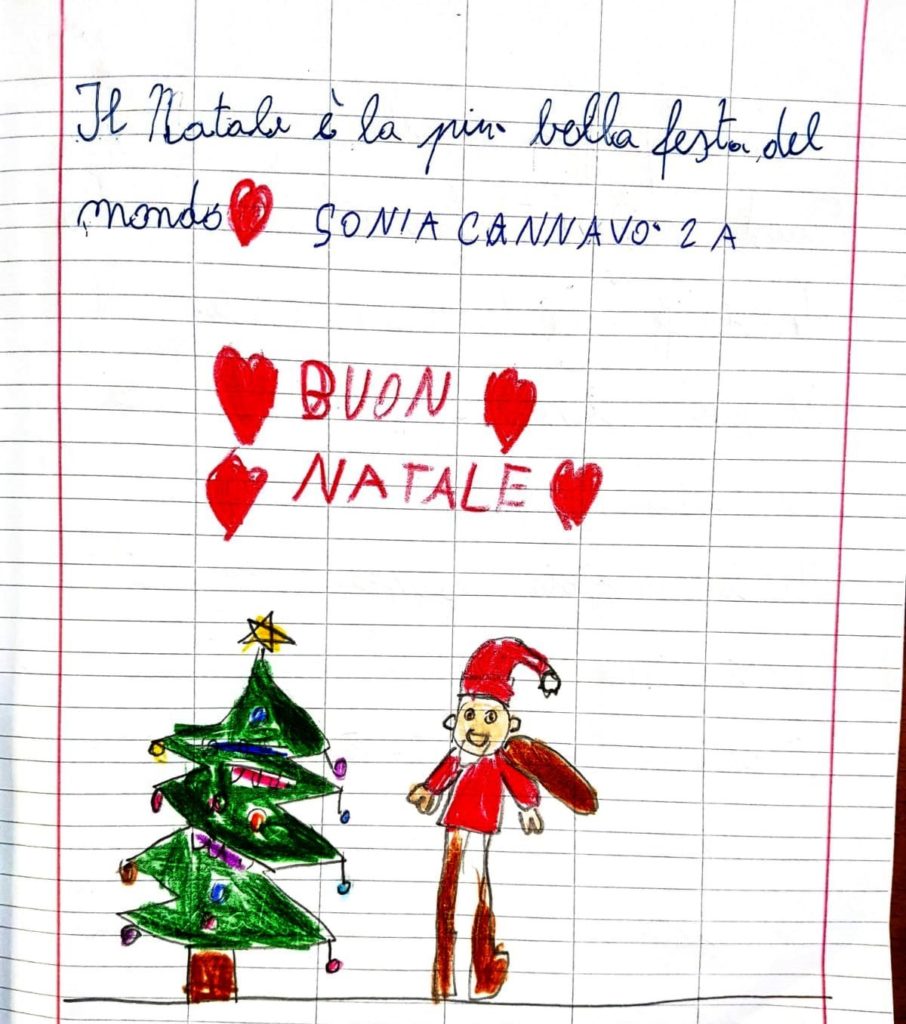 Il Natale è la più bella festa del
mondo SONIA CANNAVO' 2 A
BUON
NATALE